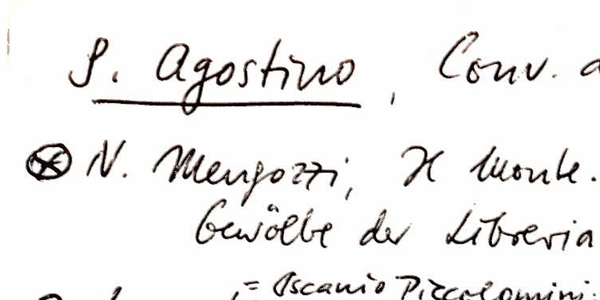 S. Agostino, Conv.
N. Mengozzi, Il Monte.
Gewölbe der Libreria
= Ascanio Piccolomini